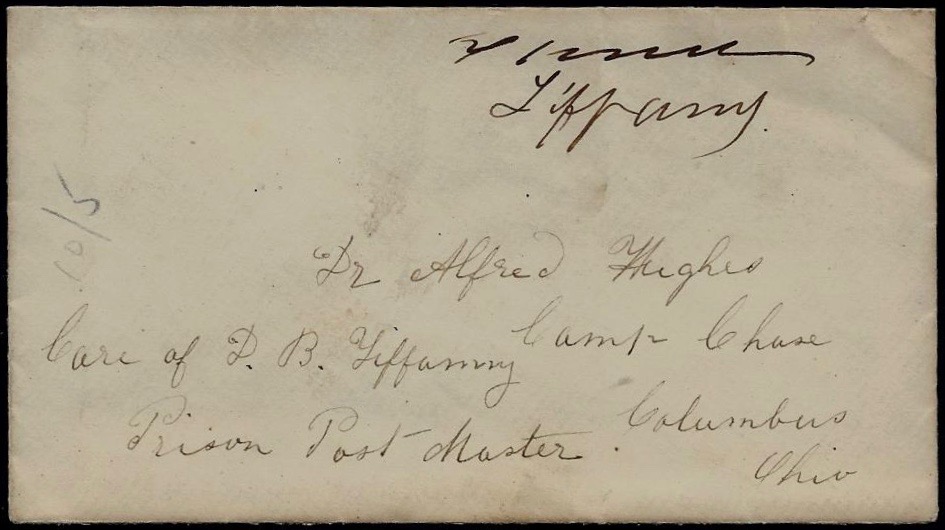 Tiffany.
10/5
Dr Alfred Hughes
Camp Chase
Care of D. B. Tiffanny
Columbus
Prison Post Master
Ohio